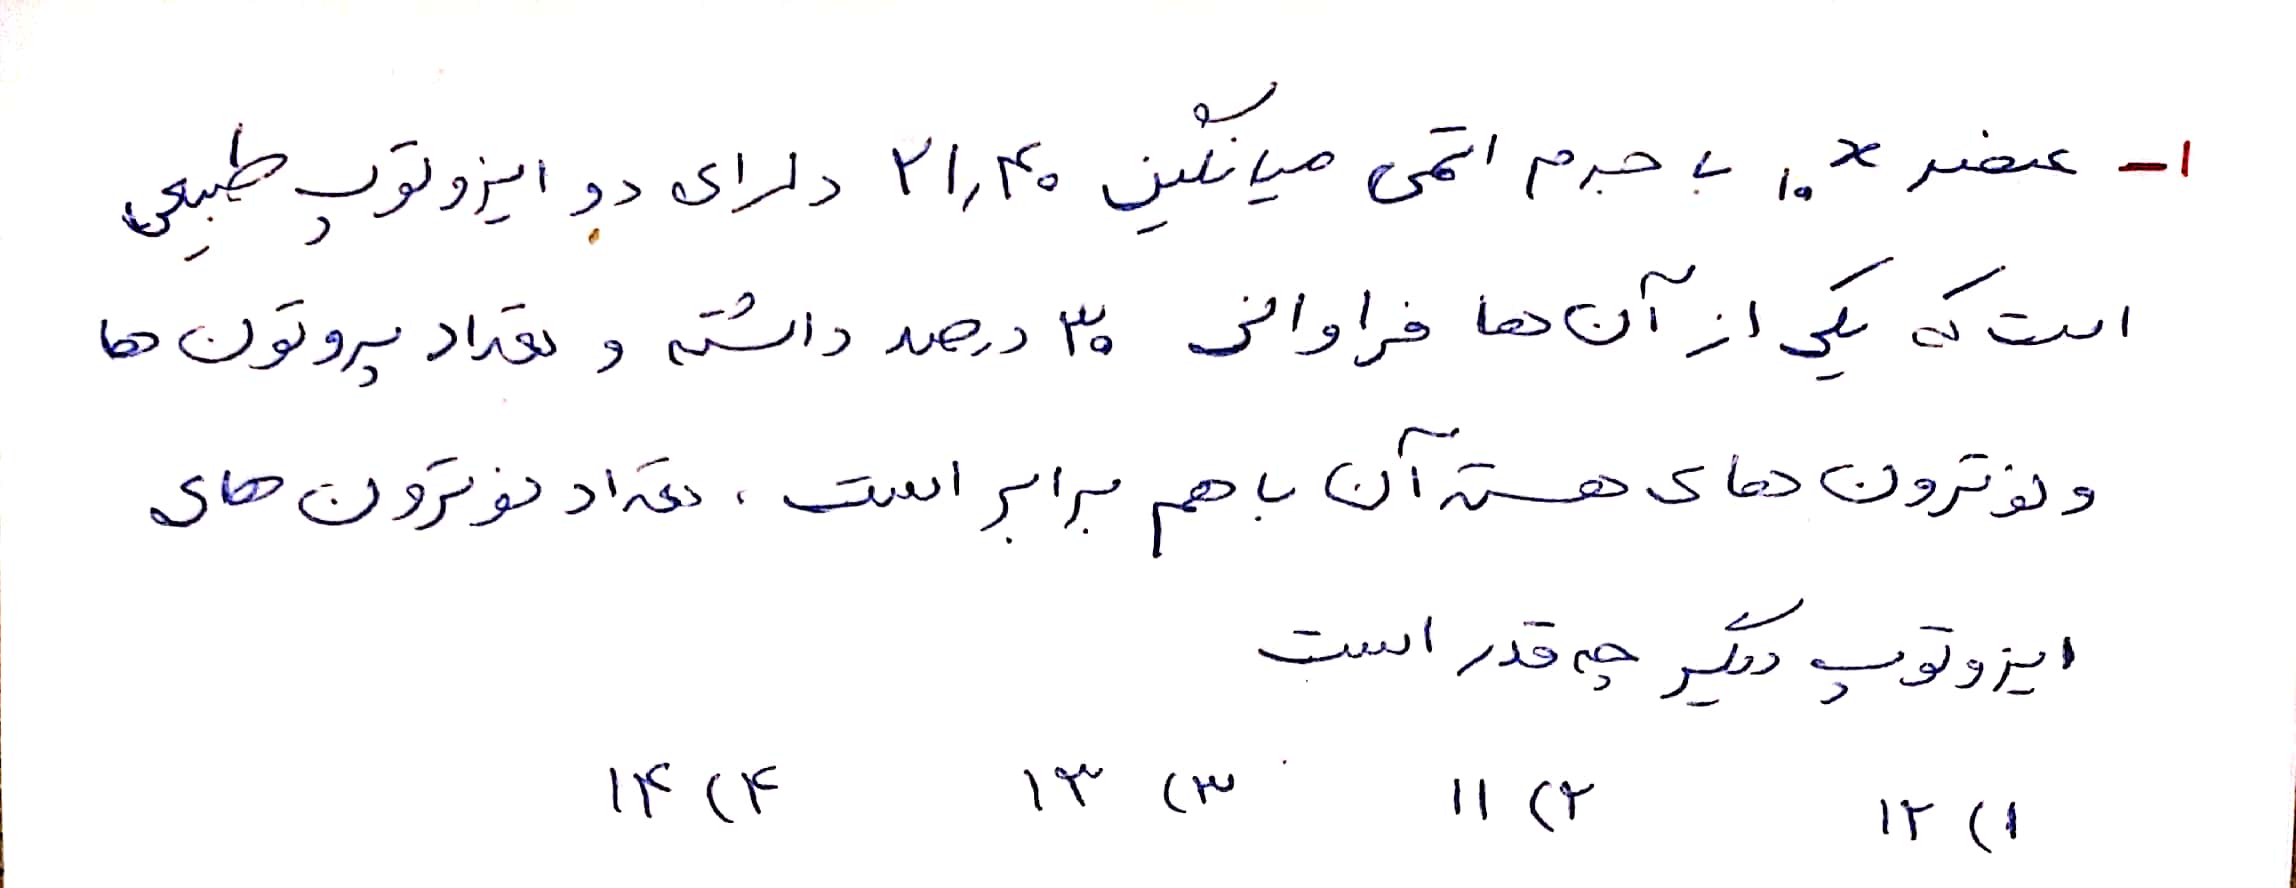 ۱- عنصر ₁₀x با جرم اتمی میانگین ۲۱٫۴۰ دارای دو ایزوتوپ طبیعی
است که یکی از آن ها فراوانی ۳۰ درصد داشته و تعداد پروتون ها
و نوترون های هسته آن با هم برابر است ، تعداد نوترون های
ایزوتوپ دیگر چه قدر است
۱) ۱۲ ۲) ۱۱ ۳) ۱۳ ۴) ۱۴